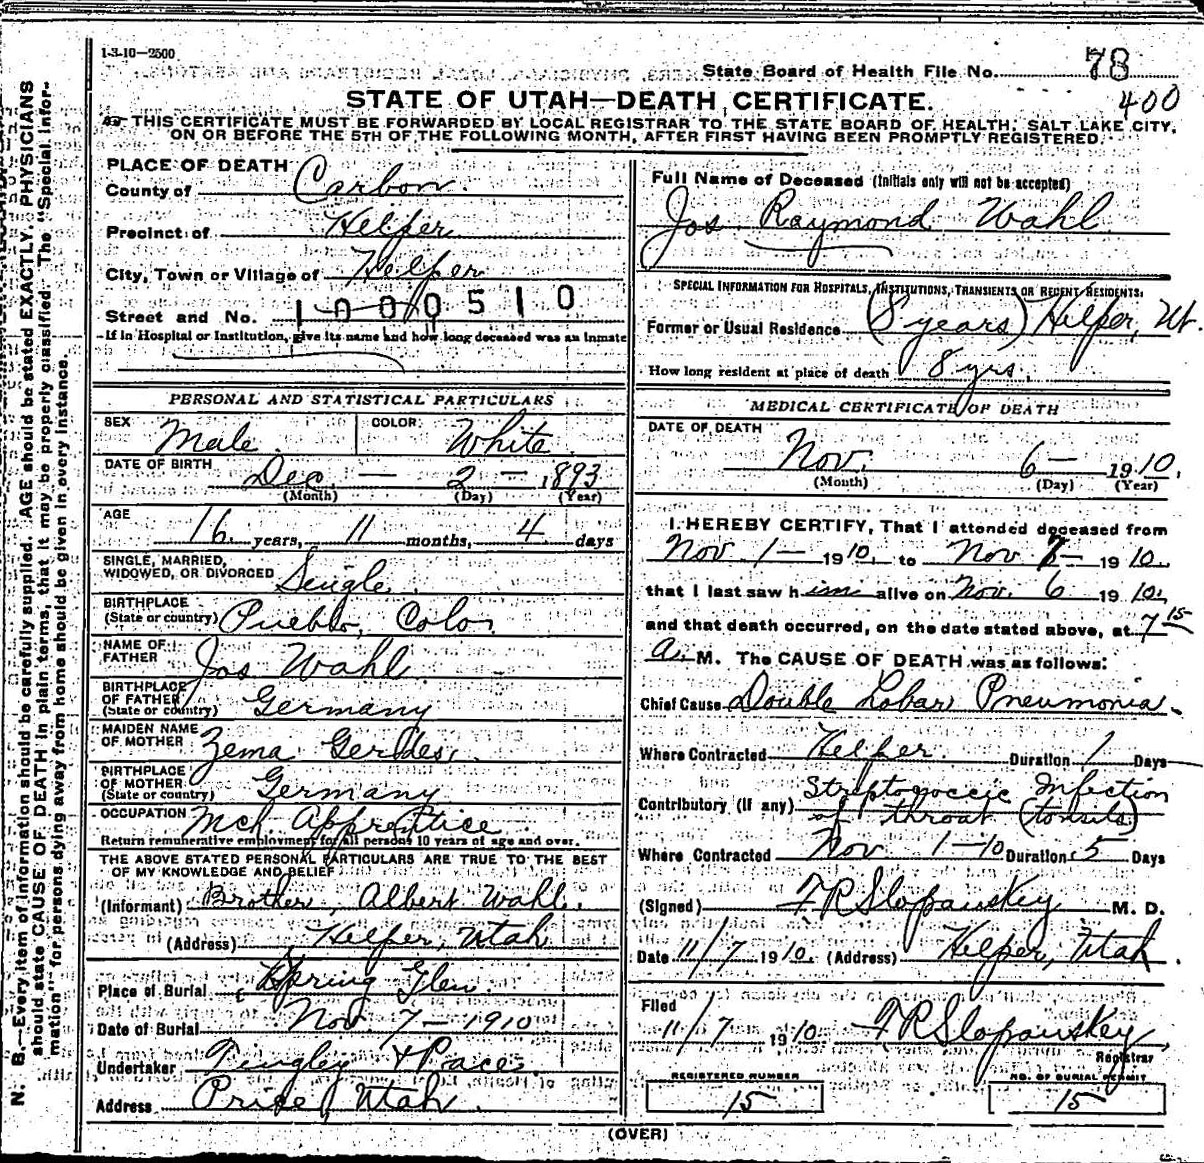 1-3-10—2500
State Board of Health File No. 78
400
STATE OF UTAH—DEATH CERTIFICATE.
THIS CERTIFICATE MUST BE FORWARDED BY LOCAL REGISTRAR TO THE STATE BOARD OF HEALTH, SALT LAKE CITY,
ON OR BEFORE THE 5TH OF THE FOLLOWING MONTH, AFTER FIRST HAVING BEEN PROMPTLY REGISTERED.
N. B.—Every item of information should be carefully supplied. AGE should be stated EXACTLY. PHYSICIANS
should state CAUSE OF DEATH in plain terms, that it may be properly classified. The "Special Infor-
mation" for persons dying away from home should be given in every instance.
PLACE OF DEATH
County of Carbon.
Precinct of Helper
City, Town or Village of Helper
Street and No. 1000510
If in Hospital or Institution, give its name and how long deceased was an inmate
PERSONAL AND STATISTICAL PARTICULARS
SEX Male. COLOR White.
DATE OF BIRTH Dec — 2 — 1893
(Month) (Day) (Year)
AGE 16 years, 11 months, 4 days
SINGLE, MARRIED,
WIDOWED, OR DIVORCED Single.
BIRTHPLACE
(State or country) Pueblo, Colo.
NAME OF
FATHER Jos Wahl.
BIRTHPLACE
OF FATHER
(State or country) Germany
MAIDEN NAME
OF MOTHER Zema Gerdes,
BIRTHPLACE
OF MOTHER
(State or country) Germany
OCCUPATION Mch. Apprentice.
Return remunerative employment for all persons 10 years of age and over.
THE ABOVE STATED PERSONAL PARTICULARS ARE TRUE TO THE BEST
OF MY KNOWLEDGE AND BELIEF
(Informant) Brother, Albert Wahl.
(Address) Helper, Utah
Place of Burial Spring Glen.
Date of Burial Nov. 7 — 1910.
Undertaker Tingley & Pace.
Address Price, Utah.
Full Name of Deceased (Initials only will not be accepted)
Jos. Raymond Wahl.
SPECIAL INFORMATION FOR HOSPITALS, INSTITUTIONS, TRANSIENTS OR RECENT RESIDENTS.
Former or Usual Residence (8 years) Helper, Ut.
How long resident at place of death 8 yrs.
MEDICAL CERTIFICATE OF DEATH
DATE OF DEATH
Nov. 6 — 1910.
(Month) (Day) (Year)
I HEREBY CERTIFY, That I attended deceased from
Nov 1 — 1910, to Nov 6 — 1910.
that I last saw him alive on Nov. 6 1910,
and that death occurred, on the date stated above, at 7 15
a. M. The CAUSE OF DEATH was as follows:
Chief Cause Double Lobar Pneumonia.
Where Contracted Helper. Duration Days
Contributory (if any) Streptococcic Infection
of throat (tonsils)
Where Contracted Nov 1-10 Duration 5 Days
(Signed) F R Slopanskey M. D.
Date 11/7 1910. (Address) Helper, Utah.
Filed
11/7 1910. F R Slopanskey
Registrar
REGISTERED NUMBER NO. OF BURIAL PERMIT
15 15
(OVER)